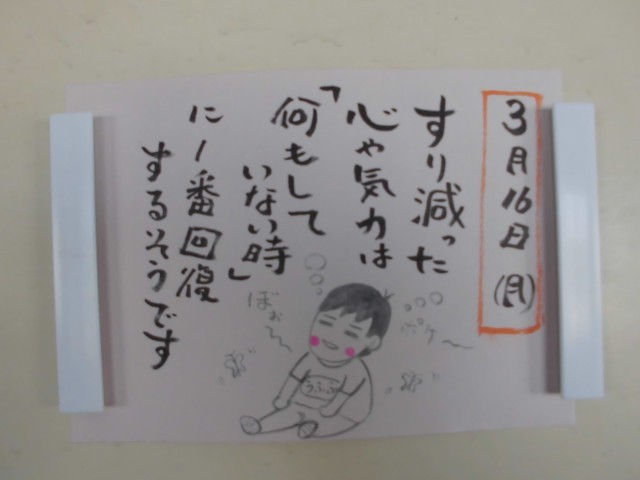 3月16日(月)
すり減った
心や気力は
「何もして
いない時」
に1番回復
するそうです
ぼぉ〜
ポケ〜